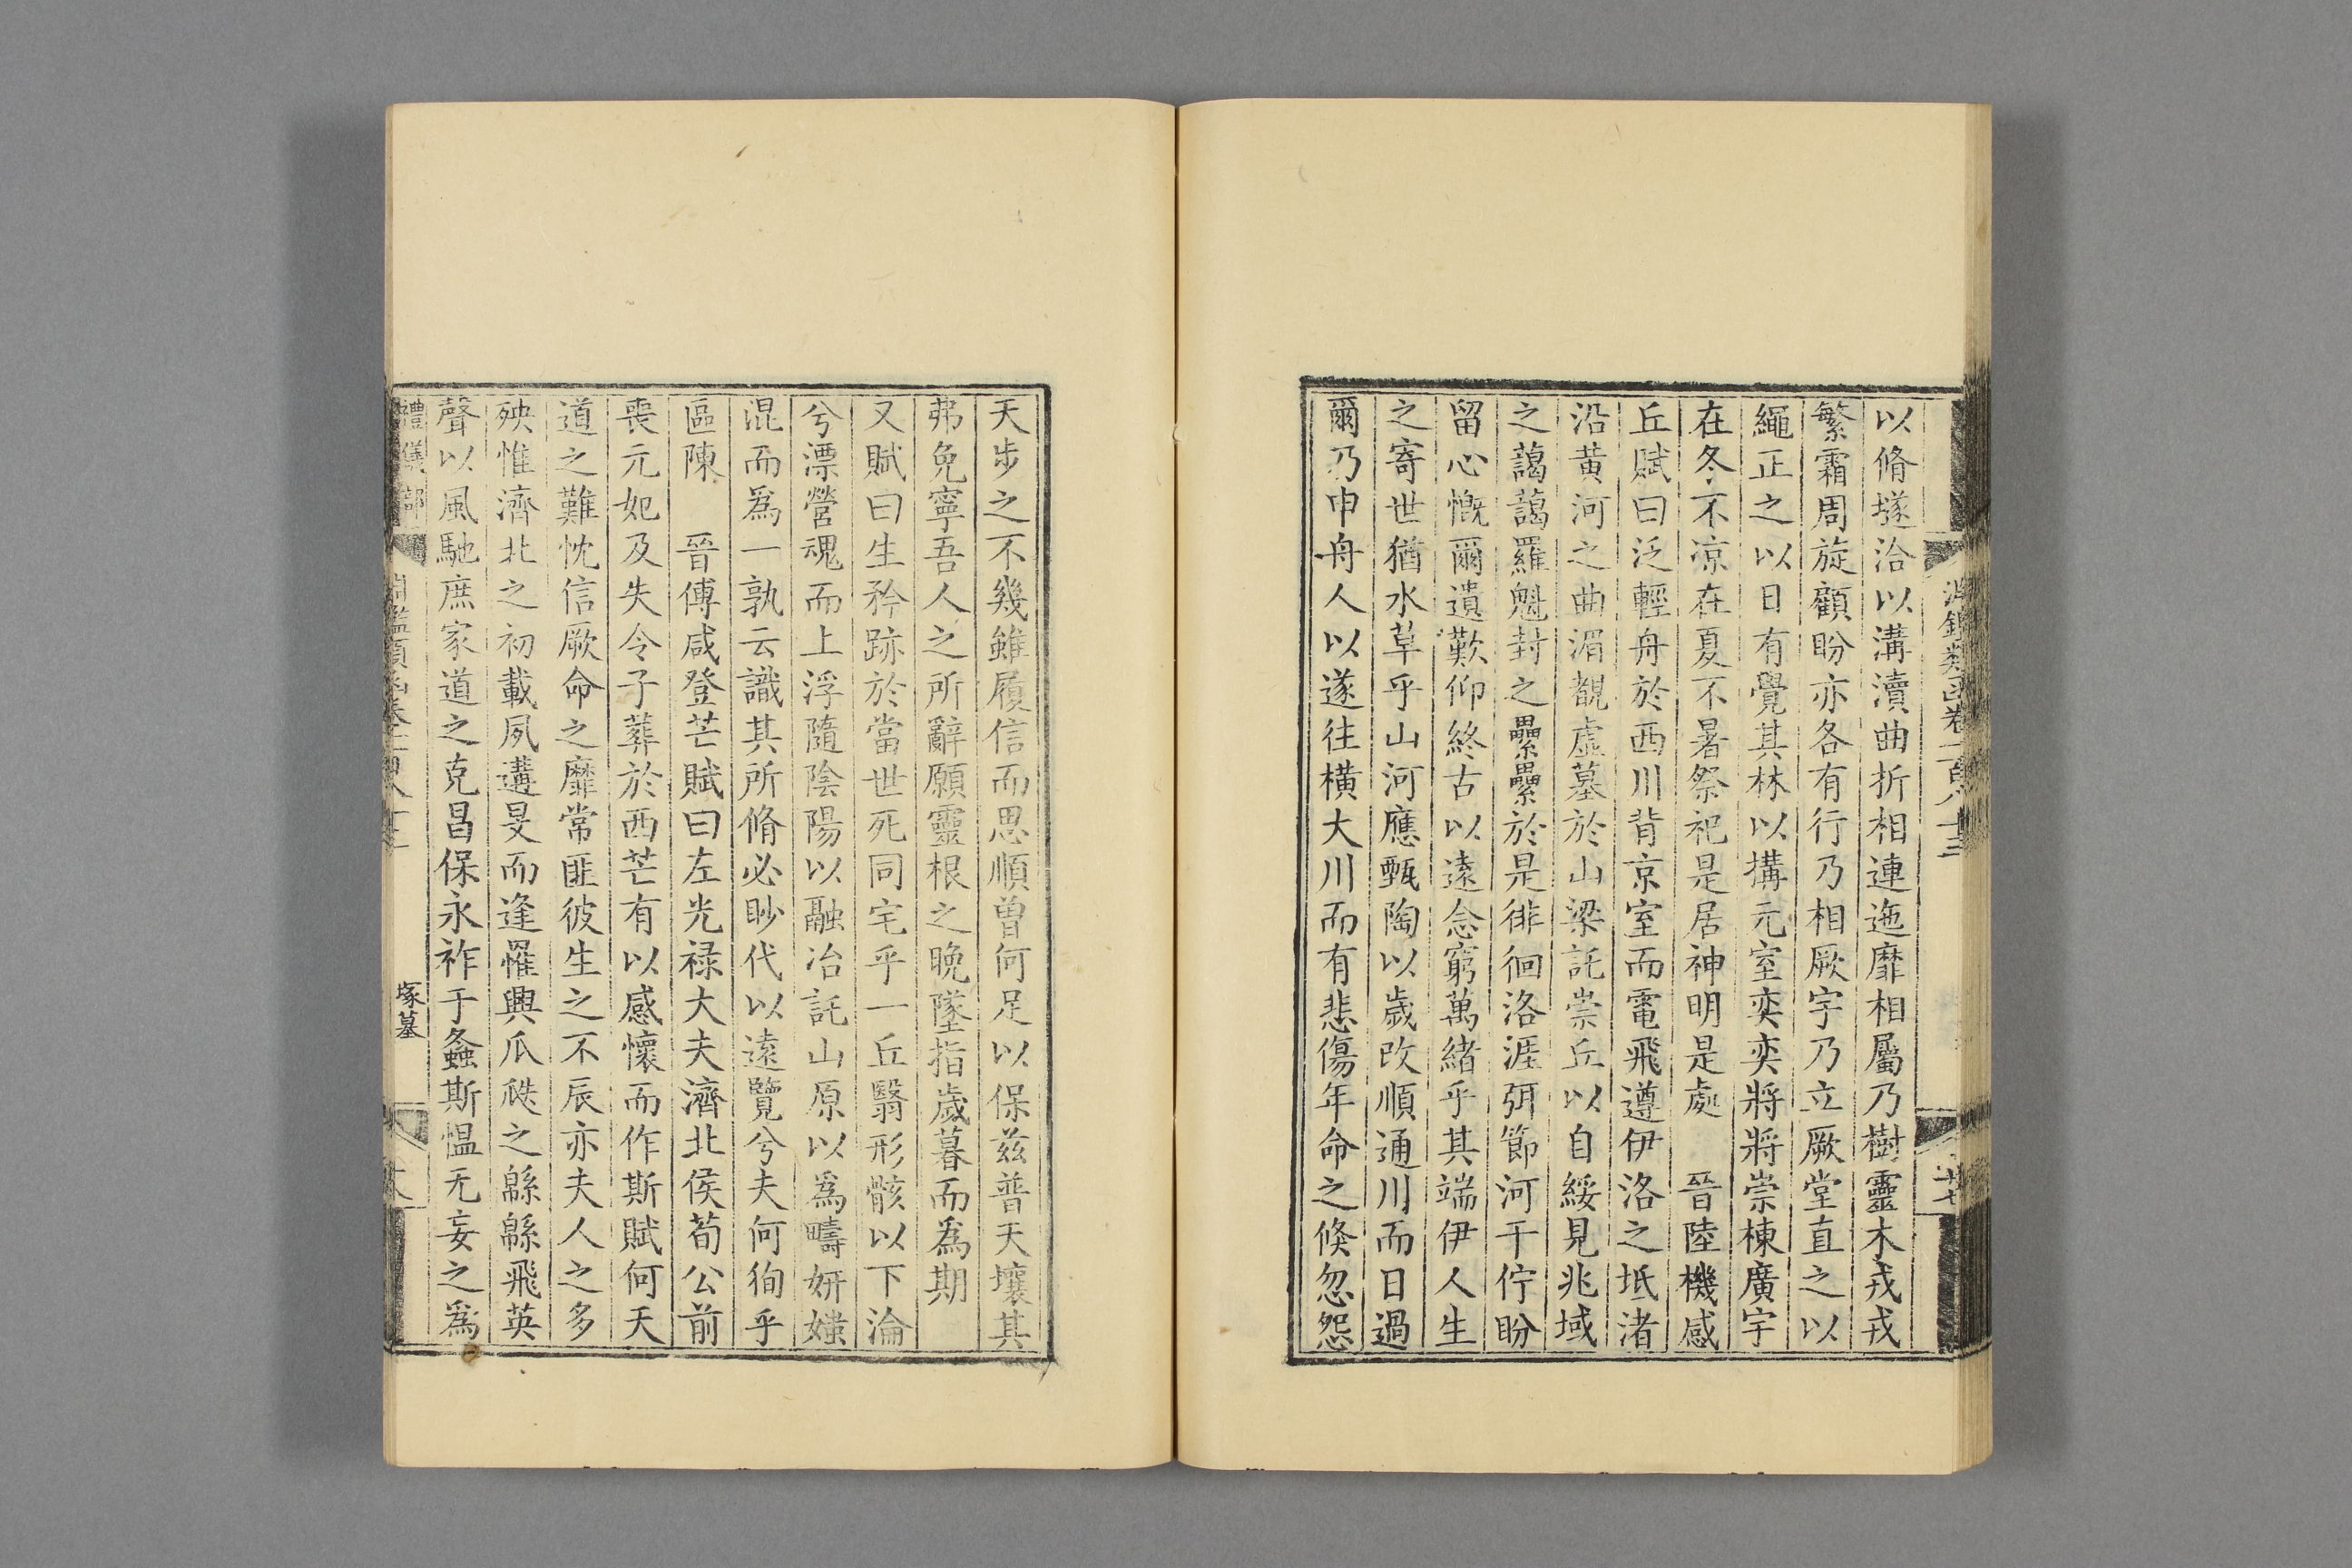 淵鑑類函卷一百八十三
廿七
以脩墜洽以溝瀆曲折相連迤靡相屬乃樹靈木戎戎
繁霜周旋顧盼亦各有行乃相厥宇乃立厥堂直之以
繩正之以日有覺其林以搆元室奕奕將將崇棟廣宇
在冬不涼在夏不暑祭祀是居神明是處　晉陸機感
丘賦曰泛輕舟於西川背京室而電飛遵伊洛之坻渚
沿黃河之曲湄覩虛墓於山梁託崇丘以自綏見兆域
之藹藹羅魁封之纍纍於是徘徊洛涯弭節河干佇盼
留心慨爾遺歎仰終古以遠念窮萬緒乎其端伊人生
之寄世猶水草乎山河應甄陶以歲改順通川而日過
爾乃申舟人以遂往橫大川而有悲傷年命之倏忽怨
天步之不幾雖履信而思順曾何足以保茲普天壤其
弗免寧吾人之所辭願靈根之晚墜指歲暮而為期
又賦曰生矜跡於當世死同宅乎一丘翳形骸以下淪
兮漂營魂而上浮隨陰陽以融冶託山原以爲疇妍媸
混而爲一孰云識其所脩必眇代以遠覽兮夫何徇乎
區陳　晉傅咸登芒賦曰左光禄大夫濟北侯荀公前
喪元妃及失令子葬於西芒有以感懷而作斯賦何天
道之難忱信厥命之靡常匪彼生之不辰亦夫人之多
殃惟濟北之初載夙遘旻而逢罹興瓜瓞之緜緜飛英
聲以風馳庶家道之克昌保永祚于螽斯愠无妄之爲
禮儀部
淵鑑類函卷一百八十三
塚墓